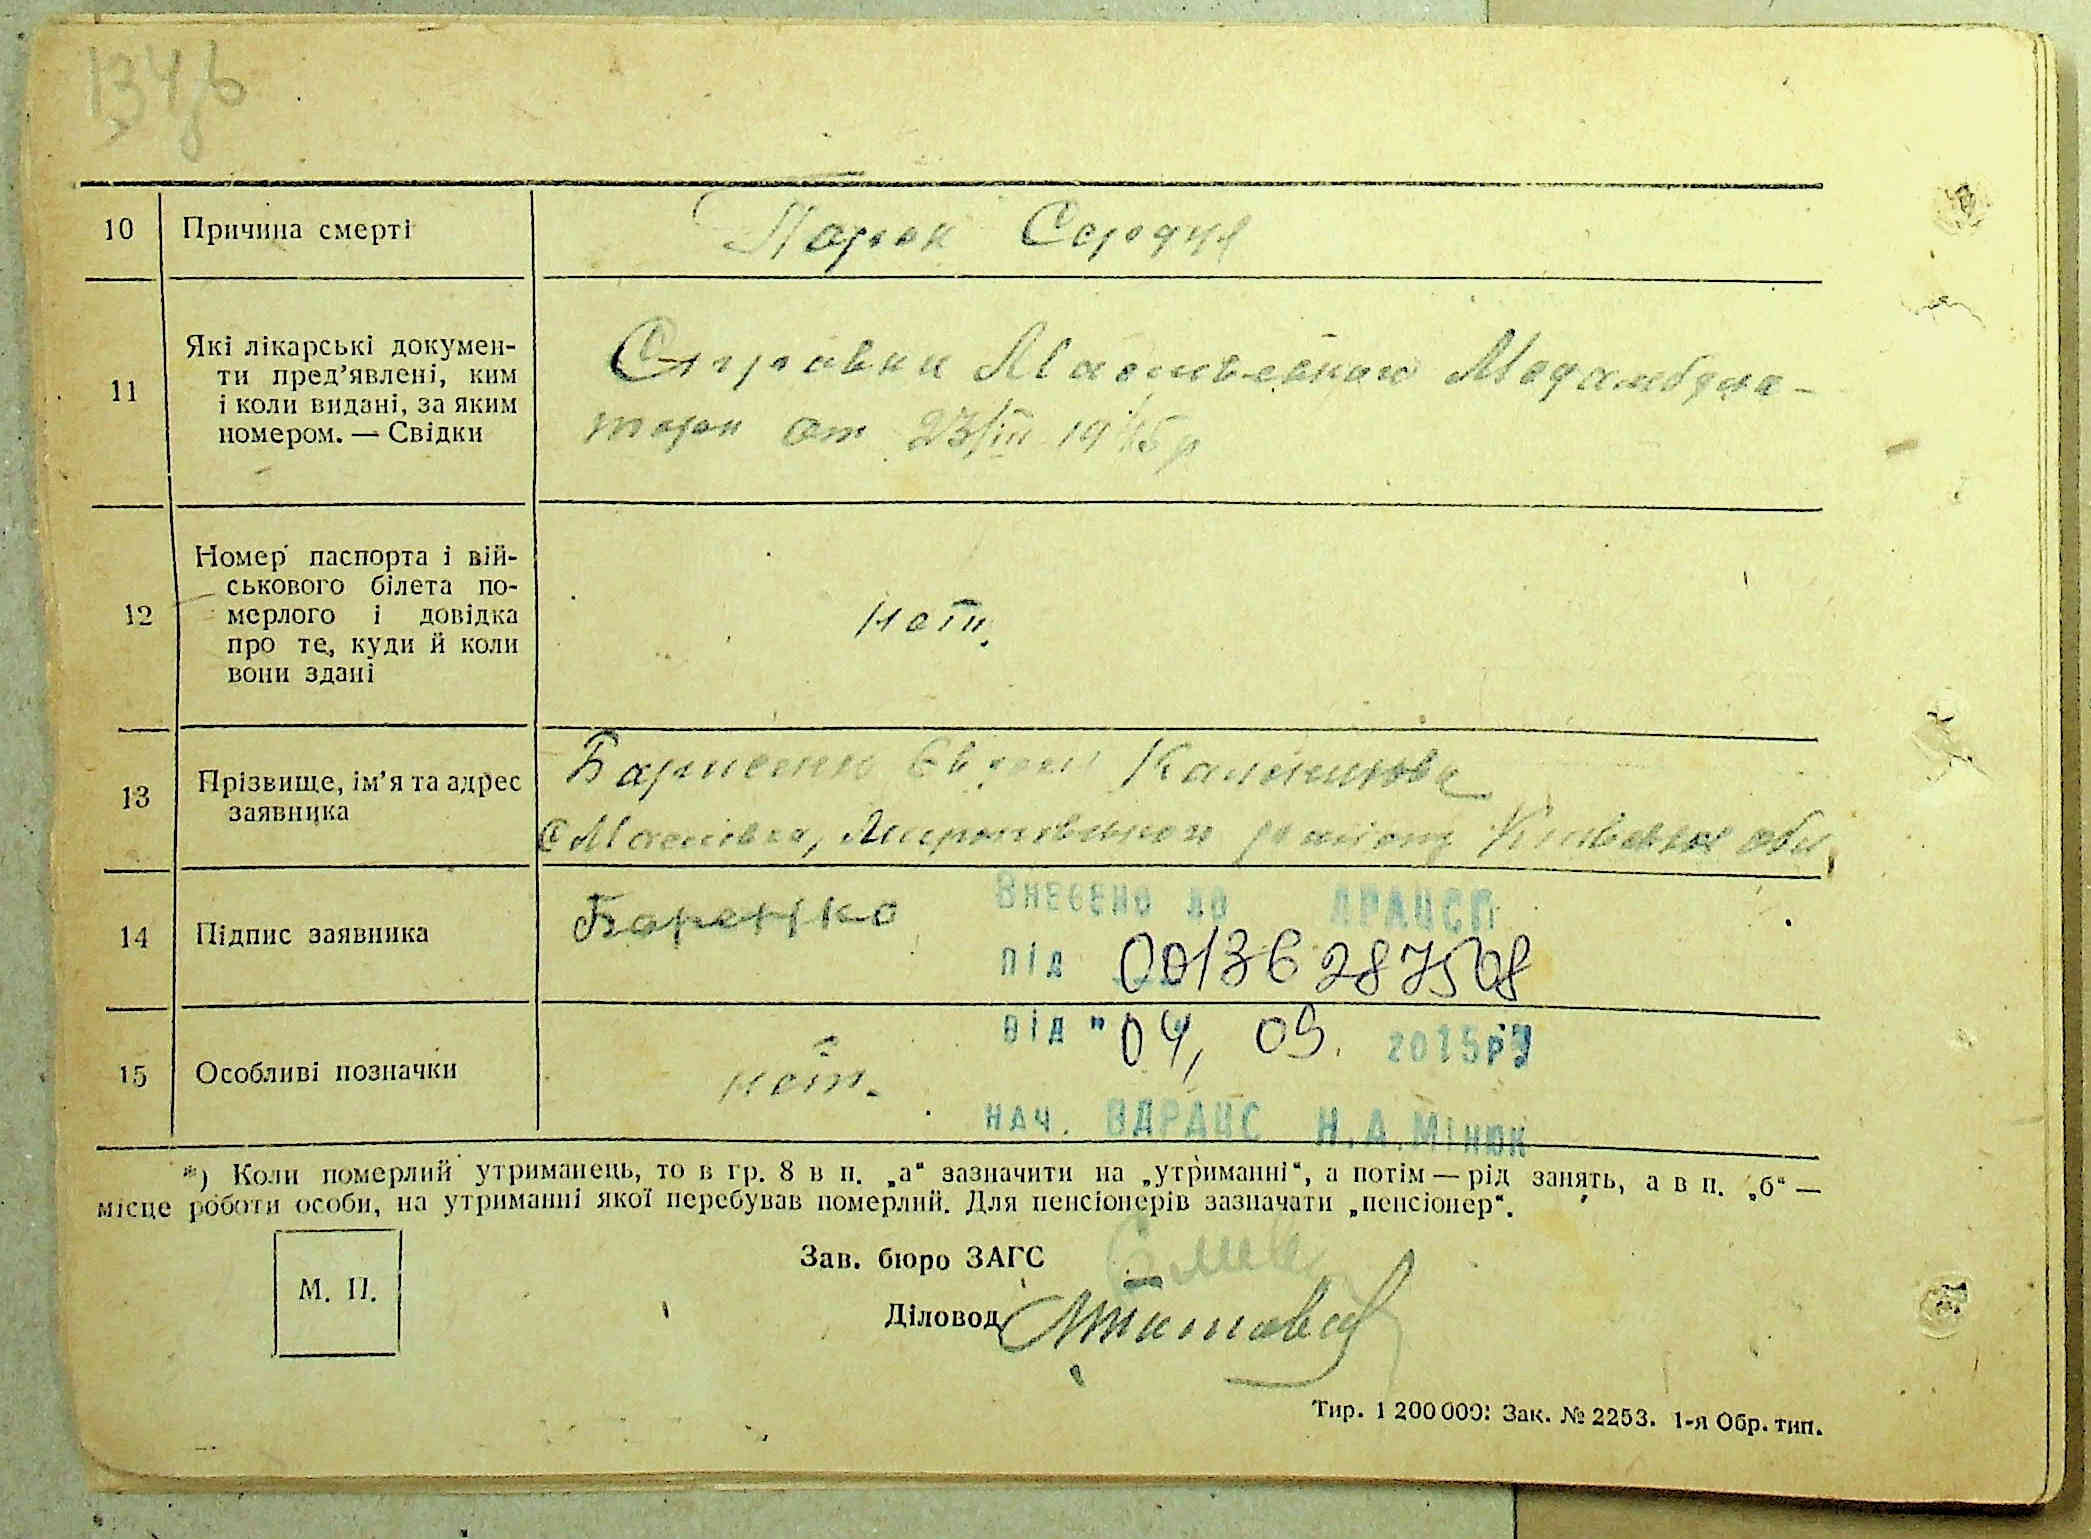 134зв
10 Причина смерті Порок Сердця
11 Які лікарські докумен-
ти пред’явлені, ким
і коли видані, за яким
номером. — Свідки
Справки Масовської Медамбула-
торії от 23/III 1945р
12 Номер паспорта і вій-
ськового білета по-
мерлого і довідка
про те, куди й коли
вони здані
нет.
13 Прізвище, ім’я та адрес
заявника
С Масовка, Миронівського району Київської обл,
14 Підпис заявника
Внесено до ДРАЦСГ
під 00136287508
від "04, 09. 2015р.
15 Особливі позначки нет.
нач. ВДРАЦС Н.А.Мінюк
*) Коли померлий утриманець, то в гр. 8 в п. „а“ зазначити на „утриманні“, а потім — рід занять, а в п. „б“ —
місце роботи особи, на утриманні якої перебував померлий. Для пенсіонерів зазначати „пенсіонер“.
Зав. бюро ЗАГС
М. П.
Діловод
Тир. 1 200 000. Зак. № 2253. 1-я Обр. тип.